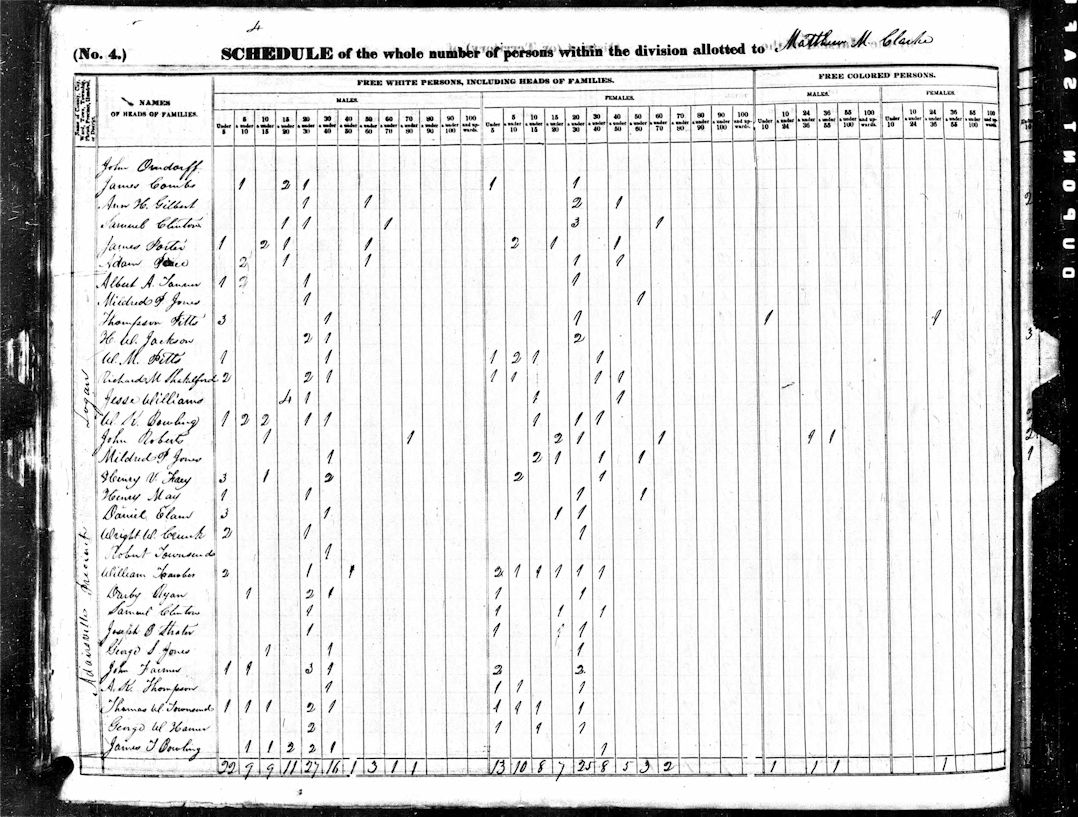 4
(No. 4.) SCHEDULE of the whole number of persons within the division allotted to Matthew M. Clarke
NAMES OF HEADS OF FAMILIES.
FREE WHITE PERSONS, INCLUDING HEADS OF FAMILIES.
FREE COLORED PERSONS.
MALES. FEMALES. MALES. FEMALES.
Under 5 5 & under 10 10 & under 15 15 & under 20 20 & under 30 30 & under 40 40 & under 50 50 & under 60 60 & under 70 70 & under 80 80 & under 90 90 & under 100 100 and upwards. Under 5 5 & under 10 10 & under 15 15 & under 20 20 & under 30 30 & under 40 40 & under 50 50 & under 60 60 & under 70 70 & under 80 80 & under 90 90 & under 100 100 and upwards. Under 10 10 & under 24 24 & under 36 36 & under 55 55 & under 100 100 and upwards. Under 10 10 & under 24 24 & under 36 36 & under 55 55 & under 100 100 and upwards.
Logan
Adairsville Precinct
John Orndorff
James Combs 1 2 1 1 1
Ann H. Gilbert 1 1 2 1
Samuel Clinton 1 1 1 3 1
James Porter 1 2 1 1 2 1 1
Adam 2 1 1 1 1
Albert A. Tanner 1 2 1 1
Mildred P Jones 1 1
Thompson Pitts 3 1 1 1 1
H. W. Jackson 2 1 2
W. M. Pitts 1 1 1 2 1 1
Richard M Shakelford 2 2 1 1 1 1 1
Jesse Williams 4 1 1 1
W. K. Bowling 1 2 2 1 1 1 1 1
John Roberts 1 1 2 1 1 1 1
Mildred P Jones 1 2 1 1 1
Henry V. 3 1 2 2 1
Henry May 1 1 1 1
Daniel Elam 3 1 1 1
Wright W. 2 1 1
Robert Townsends 1
William 2 1 1 2 1 1 1 1 1
Darby Ryan 1 2 1 1 1
Samuel Clinton 1 1 1 1
Joseph B 1 1 1 1
George S. Jones 1 1 1
John Farmer 1 1 3 1 2 2
A. K. Thompson 1 1 1 1
Thomas W. Townsends 1 1 1 2 1 1 1 1 1
George W 2 1 1 1
James T Bowling 1 1 2 2 1 1
22 9 9 11 27 16 1 3 1 1 13 10 8 7 25 8 5 3 2 1 1 1 1